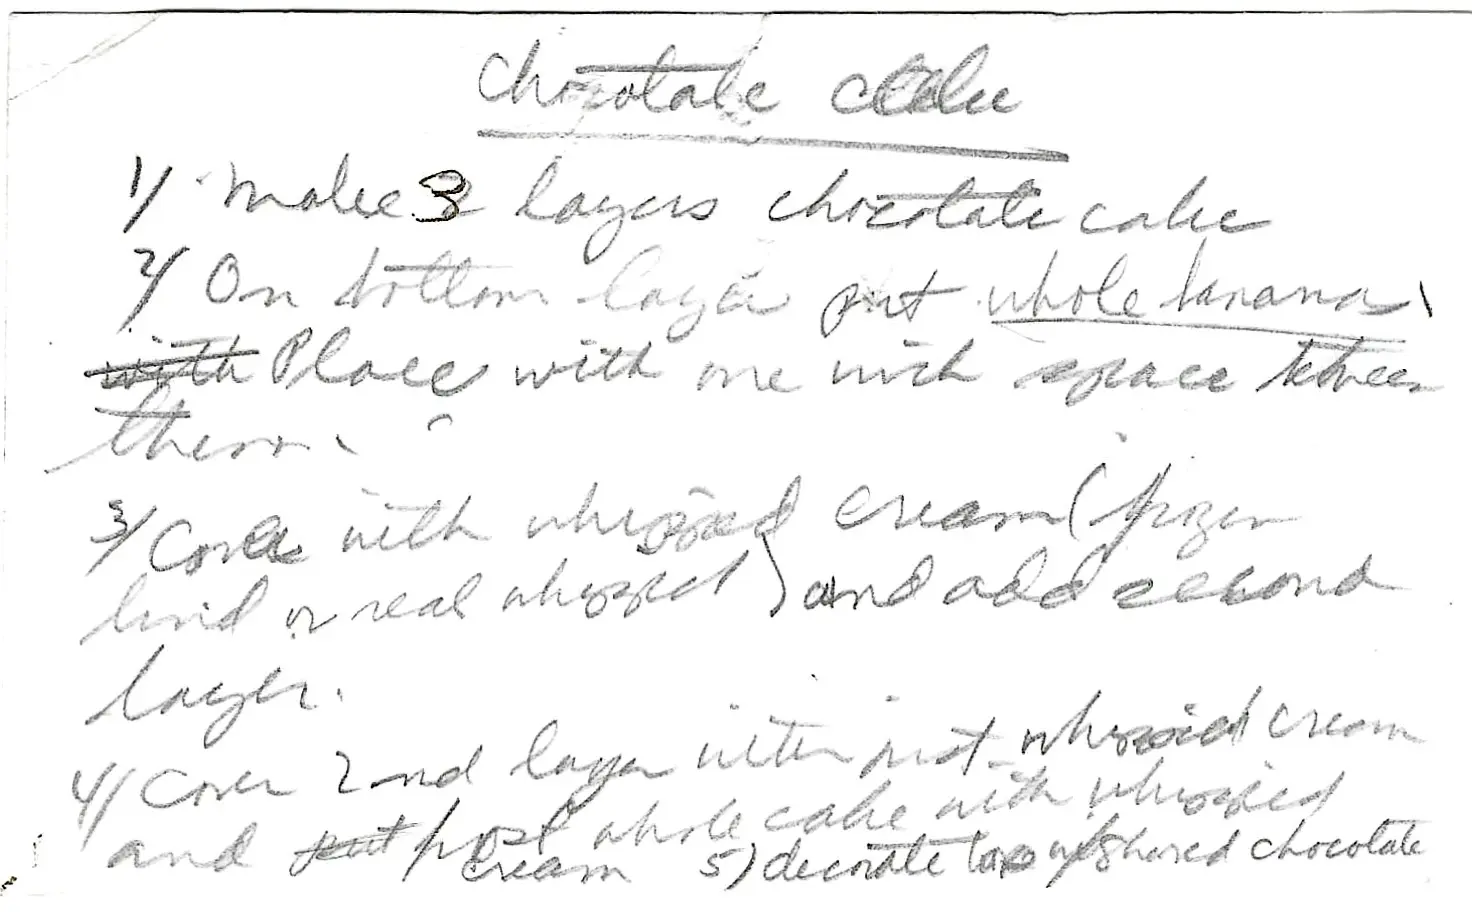 Chocolate Cake
1/ Make 3 layers chocolate cake
2/ On bottom layer put whole bananas
with Place with one inch space between
them.
3/ Cover with whipped cream (frozen
kind or real whipped) and add second
layer.
4/ Cover 2nd layer with just whipped cream
and put frost whole cake with whipped
cream 5) decorate top w/ shaved chocolate